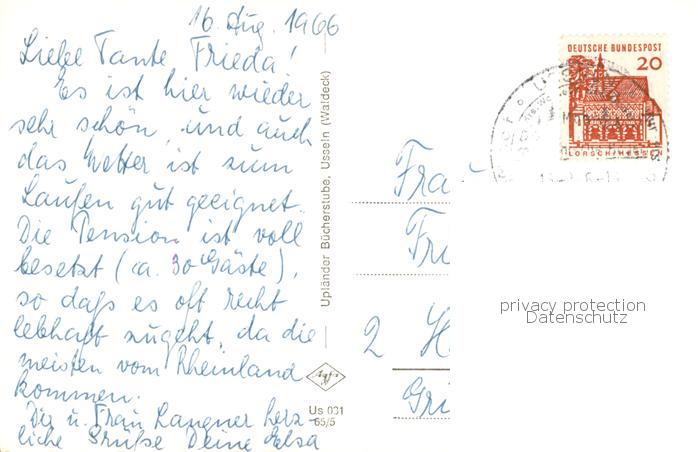 16. Aug. 1966
Liebe Tante Frieda!
Es ist hier wieder
sehr schön, und auch
das Wetter ist zum
Laufen gut geeignet.
Die Pension ist voll
besetzt (ca. 30 Gäste),
so daß es oft recht
lebhaft zugeht, da die
meisten vom Rheinland
kommen.
Dir u. Frau Langner herz-
liche Grüße Deine Elsa
Upländer Bücherstube, Usseln (Waldeck)
Agfa
Us 031
65/5
DEUTSCHE BUNDESPOST
20
LORSCH/HESSEN
Frau
2 H
privacy protection
Datenschutz